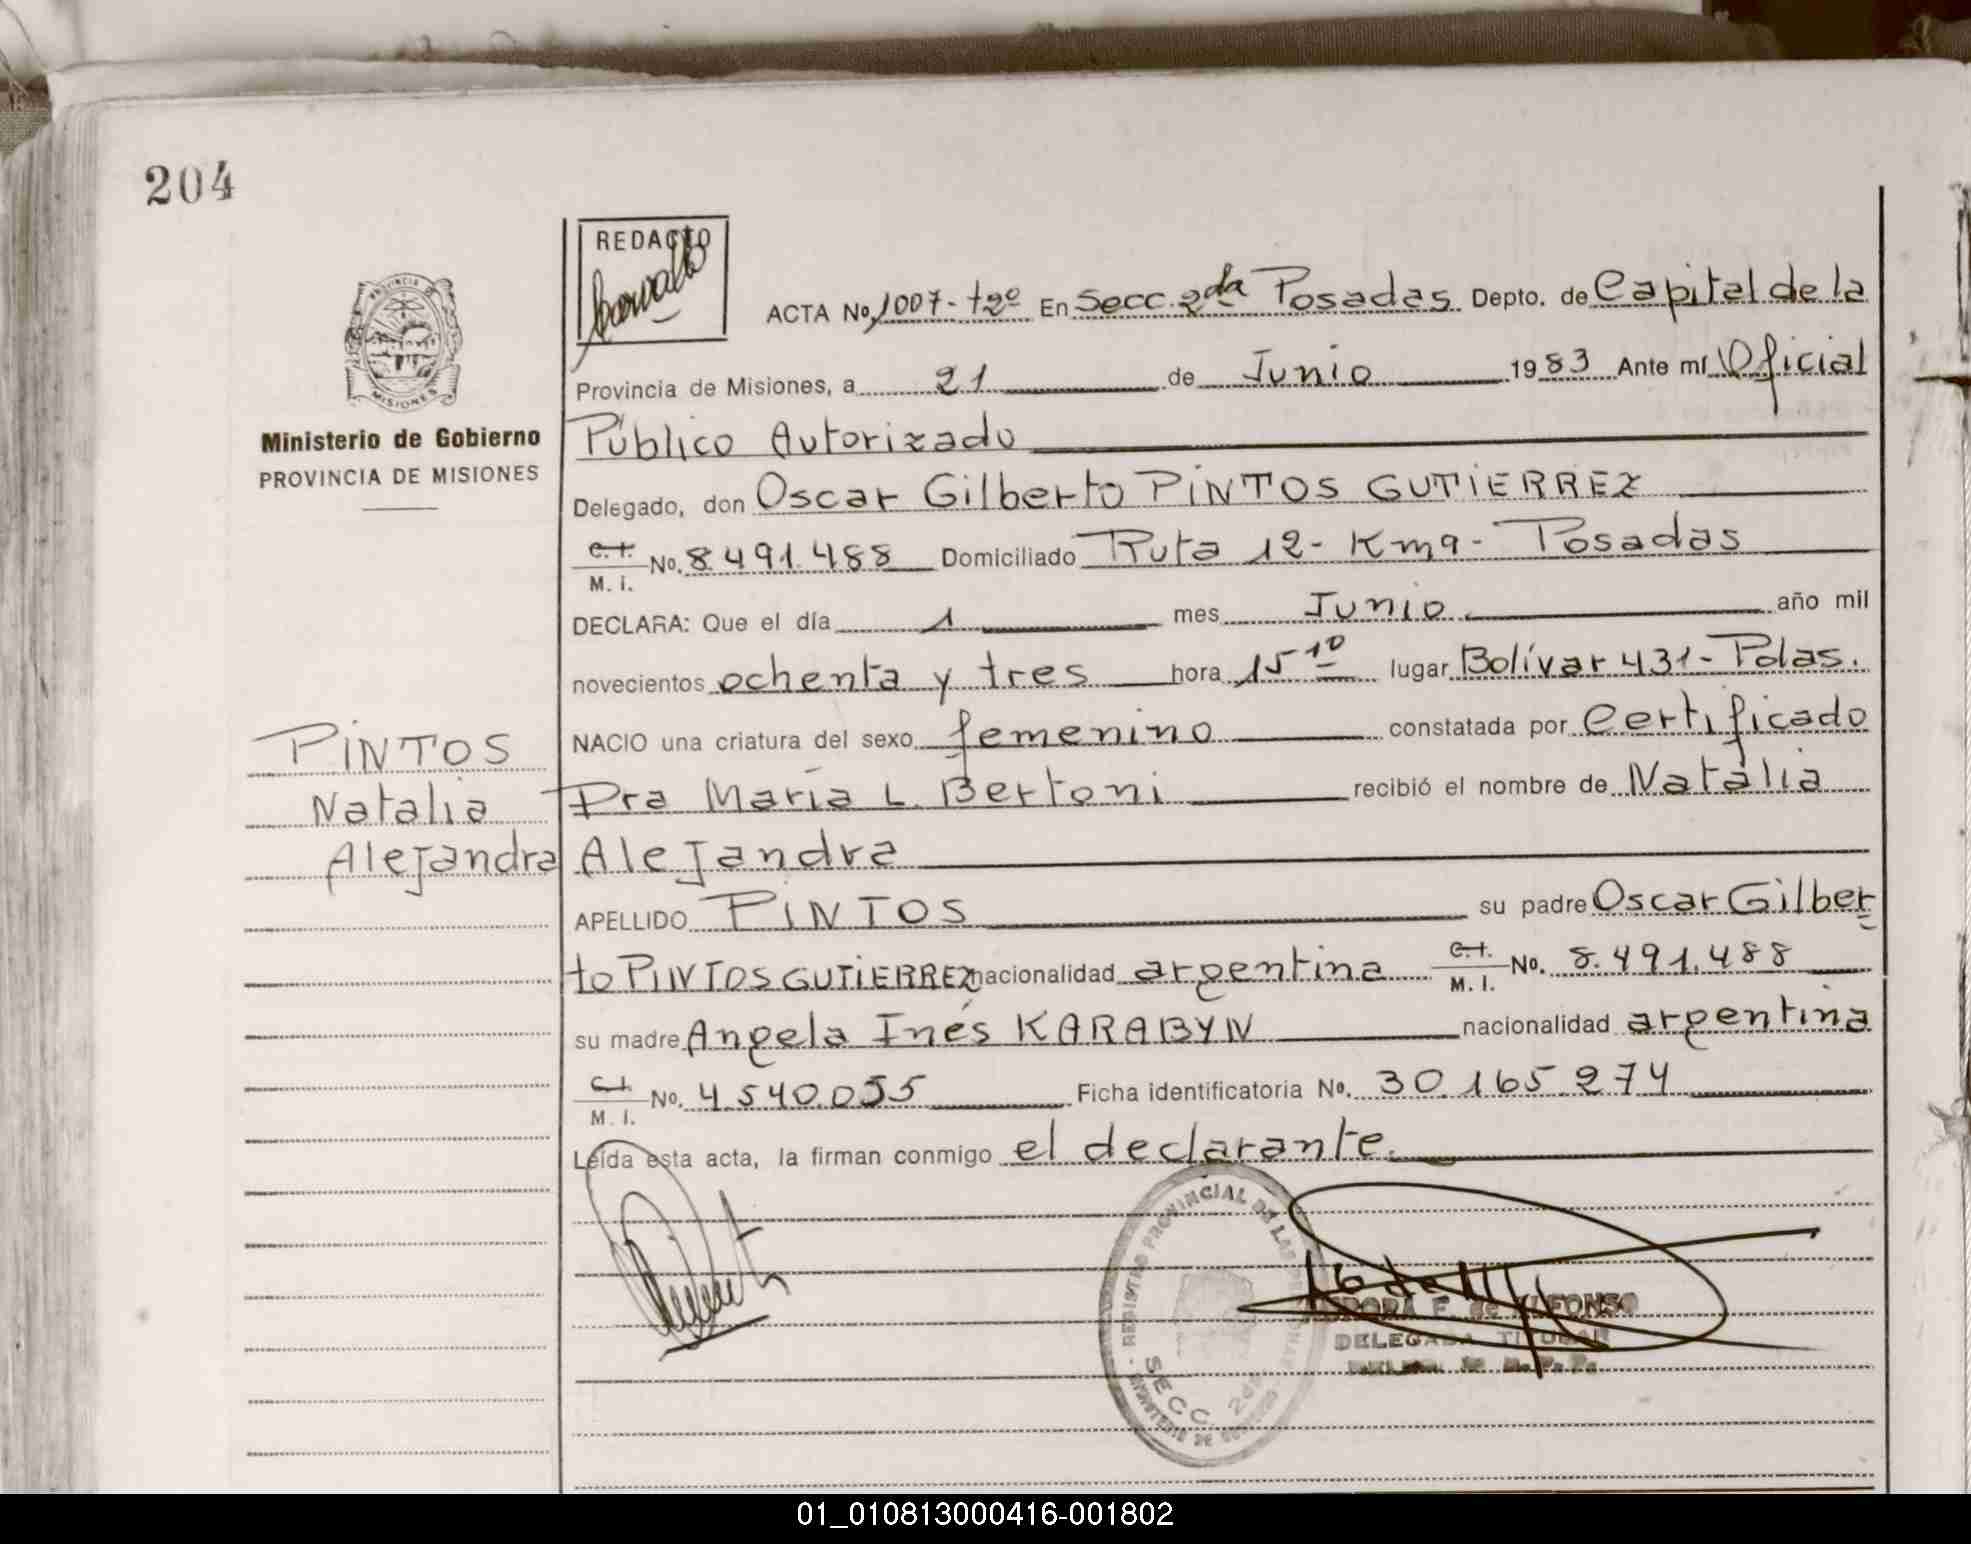 204
REDACTO
ACTA No. 1007-t2º En Secc. 2da Posadas Depto. de Capital de la
Provincia de Misiones, a 21 de Junio 1983 Ante mí Oficial
Ministerio de Gobierno
PROVINCIA DE MISIONES
Público Autorizado
Delegado, don Oscar Gilberto PINTOS GUTIERREZ
C.I.
M. I. No. 8.491.488 Domiciliado Ruta 12 - Km 9 - Posadas
DECLARA: Que el día 1 mes Junio año mil
novecientos ochenta y tres hora 15 10 lugar Bolívar 431 - Pdas.
NACIO una criatura del sexo femenino constatada por Certificado
Dra María L. Bertoni recibió el nombre de Natalia
Alejandra
PINTOS
Natalia
Alejandra
APELLIDO PINTOS su padre Oscar Gilber
to PINTOS GUTIERREZ nacionalidad argentina C.I. M. I. No. 8.491.488
su madre Angela Inés KARABYN nacionalidad argentina
C.I.
M. I. No. 4.540.055 Ficha identificatoria No. 30.165.274
Leída esta acta, la firman conmigo el declarante.
REGISTRO PROVINCIAL DE LAS
SECC. 2da
F. de ALFONSO
DELEGADA TITULAR
01_010813000416-001802